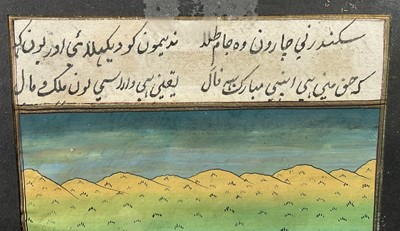 سکندر نی چارون وہ جام طلا ندیمون کو دیکھلائی اور یون
کہ حق مین ہی اپنی مبارک یہہ فال یقین ہی دارا سی لون ملک و مال